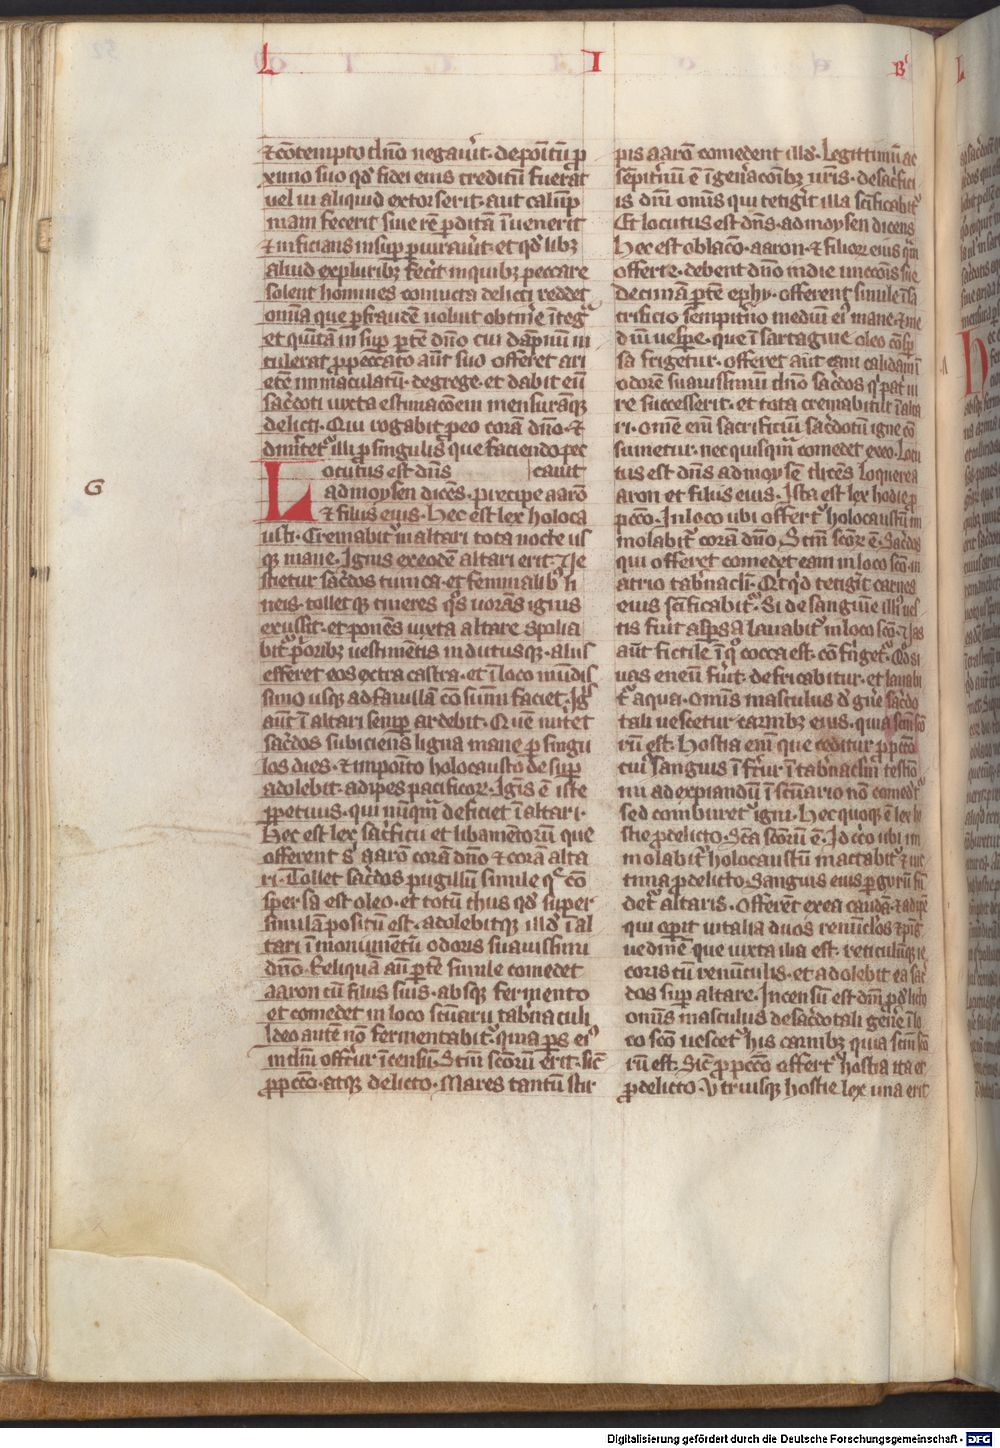 L I B
⁊ cōtempto dn̄o negau̾it · depoītū ꝓ
xīmo suo qd̾ fidei eius creditū fuerat
uel ui aliquid extorserit · aut calūp
niam fecerit siue rē ꝑditā īuenerit
⁊ inficians insup̄ ꝑiurau̾it · et qd̾ libꝫ
aliud expluribꝫ fec̾it inquibꝫ peccare
solent homines conuicta delicti reddet
om̄ia que ꝑfraudē uoluit obtin̾e īteg̾
et quītā insup̄ ꝑtē dn̄o cui dāpnū in
tulerat ꝓpeccato aūt suo offeret ari
etē inmaculatū · degrege · et dabit eū
sac̾doti iuxta estimac̄oem mensurāqꝫ
delicti · Qui rogabit ꝓeo corā dn̄o · ⁊
dimitet᷑ illi ꝓ singulis que faciendo pec
Locutus est dn̄s cauit
admoysen dicēs · precipe aarō
⁊ filiis eius · Hec est lex holoca
usti · Cremabit᷑ in altari tota nocte us
qꝫ mane · Ignis exeodē altari erit · Ue
stietur sac̾dos tunica · et feminalibꝫ li
neis · tolletqꝫ cineres qͦs uorās ignis
exussit · et ponēs iuxta altare spolia
bit᷑ p̾oribꝫ uestimentis indutusqꝫ · aliis
efferet eos extra castra · et ī loco mūdis
simo usqꝫ ad fauillā cōsumi faciet · Ig̾s
aūt ī altari semꝑ ardebit · Quē nut̾iet
sac̾dos subiciens ligna mane ꝑ singu
los dies · ⁊ imposito holocausto desuꝑ
adolebit · adipes pacificoꝝ · Ignis ē iste
ꝑpetuus · qui nūqm̄ deficiet ī altari ·
Hec est lex sac̾ficii et libamētorū que
offerent filii aarō corā dn̄o ⁊ corā alta
ri · Tollet sac̾dos pugillū simile que cō
spersa est oleo · et totū thus qd̾ super
similā positū est · adolebitqꝫ illd̾ ī al
tari ī monumētū odoris suauissimi
dn̄o · Reliquā aūt ꝑtē simile comedet
aaron cū filiis suis · absqꝫ fermento
et comedet in loco sc̄o atrii tab̾naculi
Ideo autē nō fermentabit᷑ · quia ꝑs ei᷒
in dn̄i offert̾ur īcensū · Sc̄m sc̄orū erit · sic̄
ꝓpc̄c̄o · atqꝫ delicto · Mares tantū stir
G
pis aarō comedent illd̾ · Legittimū ac
sēpit̾nū ē ī gen̾ac̄oibꝫ ur̄is · desac̾fici
is dn̄i om̄is qui tetig̾it illa sc̄ificabit᷑
Et locutus est dn̄s · admoysen dicens
Hec est oblac̄o · aaron · ⁊ filioꝝ eius qm̄
offerre · debent dn̄o indie uncc̄onis sue
Decimā ꝑtē ephy · offerent simile ī sa
crificio sempit̾no mediū ei᷒ mane · ⁊ me
diū uesꝑe · que ī sartagine oleo cōsp̾
sa frigetur · offeret aūt eam calidam ī
odorē suauissimū dn̄o sac̾dos qͥ pat̾ iu
re successerit · et tota cremabitur ī alta
ri · om̄e em̄ sacrificiū sac̾dotū igne cō
sumetur · nec quisqm̄ comedet exeo · Locu
tus est dn̄s admoysē dicēs Loquere a
aron et filiis eius · Ista est lex hostie ꝓ
pc̄c̄o · In loco ubi offert᷑ holocaustū im
molabit᷑ corā dn̄o · Sc̄m sc̄orū ē · Sac̾dos
qui offeret comedet eam in loco sc̄o · in
atrio tab̾nacli · Qͥcqͥd tetig̾it carnes
eius sc̄ificabit᷑ · Si de sanguine illi᷒ ues
tis fu̾it asꝑsa lauabit᷑ in loco sc̄o · Uas
aūt fictile ī qͦ cocta est · cōfrīget᷑ · Qͦd si
uas eneū fu̾it · defricabitur · et lauabi
t᷑ aqua · Om̄is masculus d̾ gn̾e sac̾do
tali uescetur carnibꝫ eius · quia sc̄m sc̄o
rū est · Hostia em̄ que ceditur ꝓpc̄c̄o
cui᷒ sanguis īfert̾ur ī tab̾naclm̄ testīo
nii ad expiandū ī sc̄uario nō comedet᷑
sed comburet᷑ igni · Hec quoqꝫ ē lex ho
stie ꝓdelicto · Sc̄a sc̄orū ē · Idcͦco ubi im
molabit᷑ holocaustū mactabit᷑ ⁊ uic
tima ꝓdelicto · Sanguis eius ꝑgyrū fū
det᷑ altaris · Offerent exea caudā · ⁊ adipē
qui opit uitalia duos renūclos ⁊ pīg
uedinē que iuxta ilia est · reticulūqꝫ ie
coris cū renūculis · et adolebit ea sac̾
dos suꝑ altare · Incensū est dn̄i ꝓdelicto
om̄is masculus desac̾dotali gen̾e ī lo
co sc̄o uescet᷑ his carnibꝫ quia sc̄m sc̄o
rū est · Sic̄ ꝓpc̄c̄o offert᷑ hostia ita et
ꝓdelicto · Utriusqꝫ hostie lex una erit
Digitalisierung gefördert durch die Deutsche Forschungsgemeinschaft - DFG